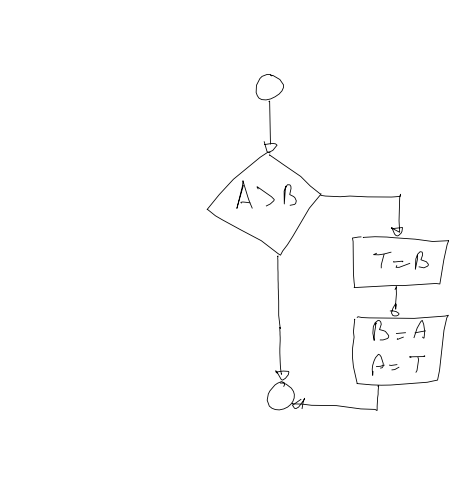 A>B
T=B
B=A
A=T